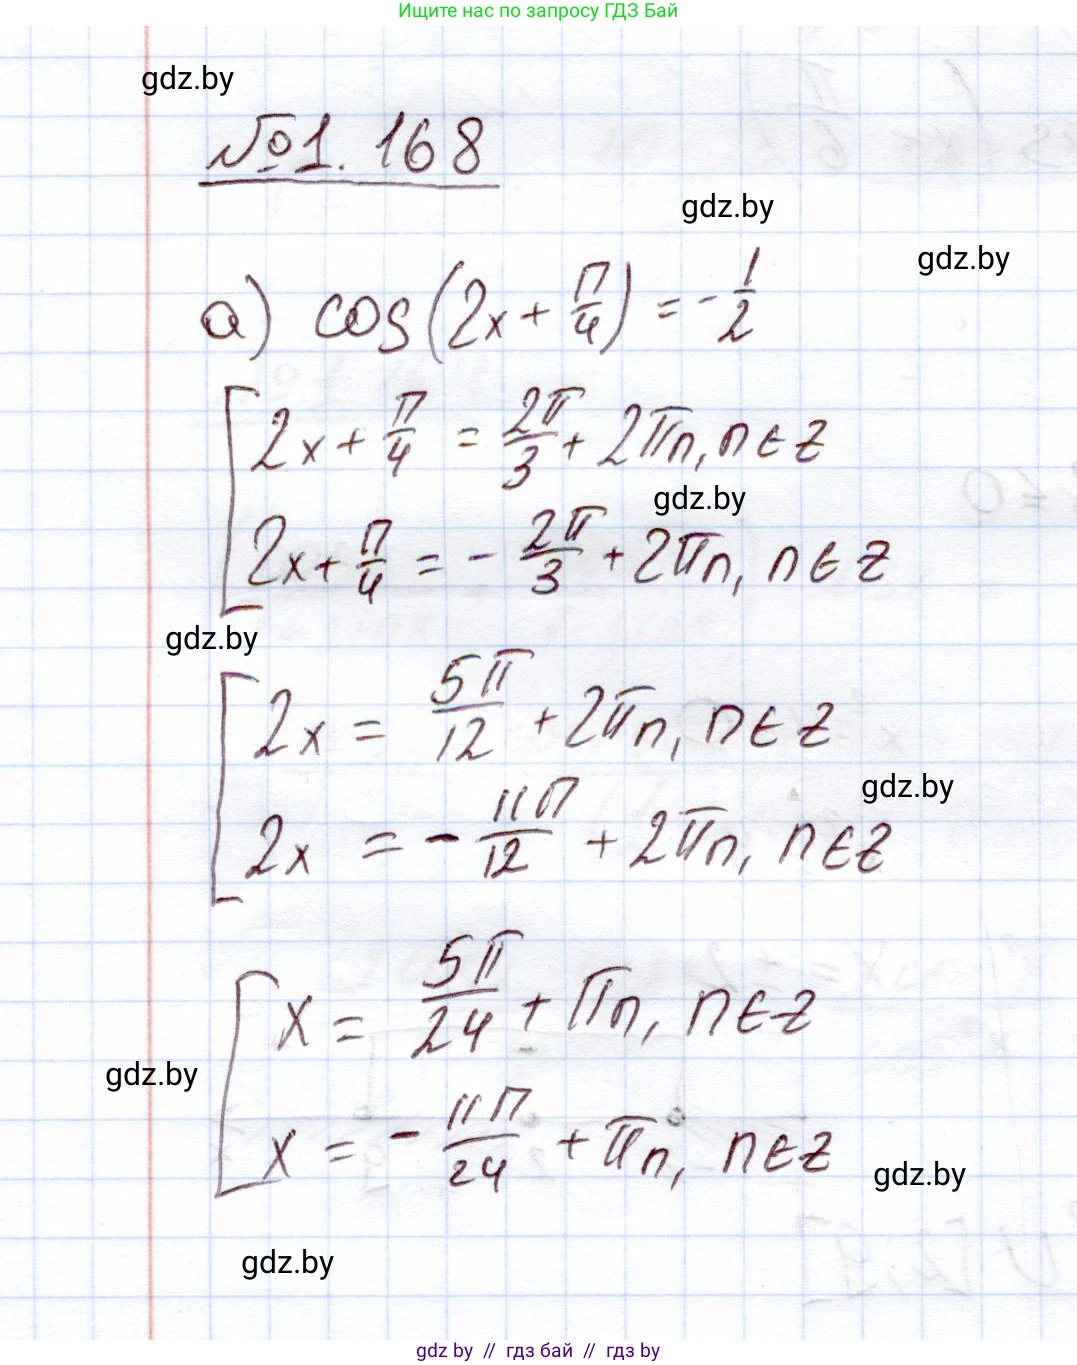 Ищите нас по запросу ГДЗ Бай
gdz.by
№1.168
gdz.by
gdz.by
а) cos(2x + π/4) = -1/2
[2x + π/4 = 2π/3 + 2πn, n∈Z
gdz.by
2x + π/4 = -2π/3 + 2πn, n∈Z
gdz.by
[2x = 5π/12 + 2πn, n∈Z
gdz.by
2x = -11π/12 + 2πn, n∈Z
[x = 5π/24 + πn, n∈Z
gdz.by
x = -11π/24 + πn, n∈Z
gdz.by
gdz.by
gdz by // гдз бай // гдз by